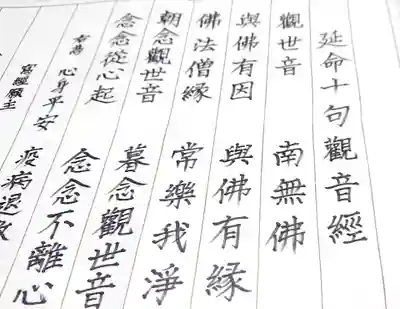 延命十句觀音經
觀世音 南無佛
與佛有因 與佛有縁
佛法僧縁 常樂我淨
朝念觀世音 暮念觀世音
念念從心起 念念不離心
右為 心身平安 疫病退
寫經願主